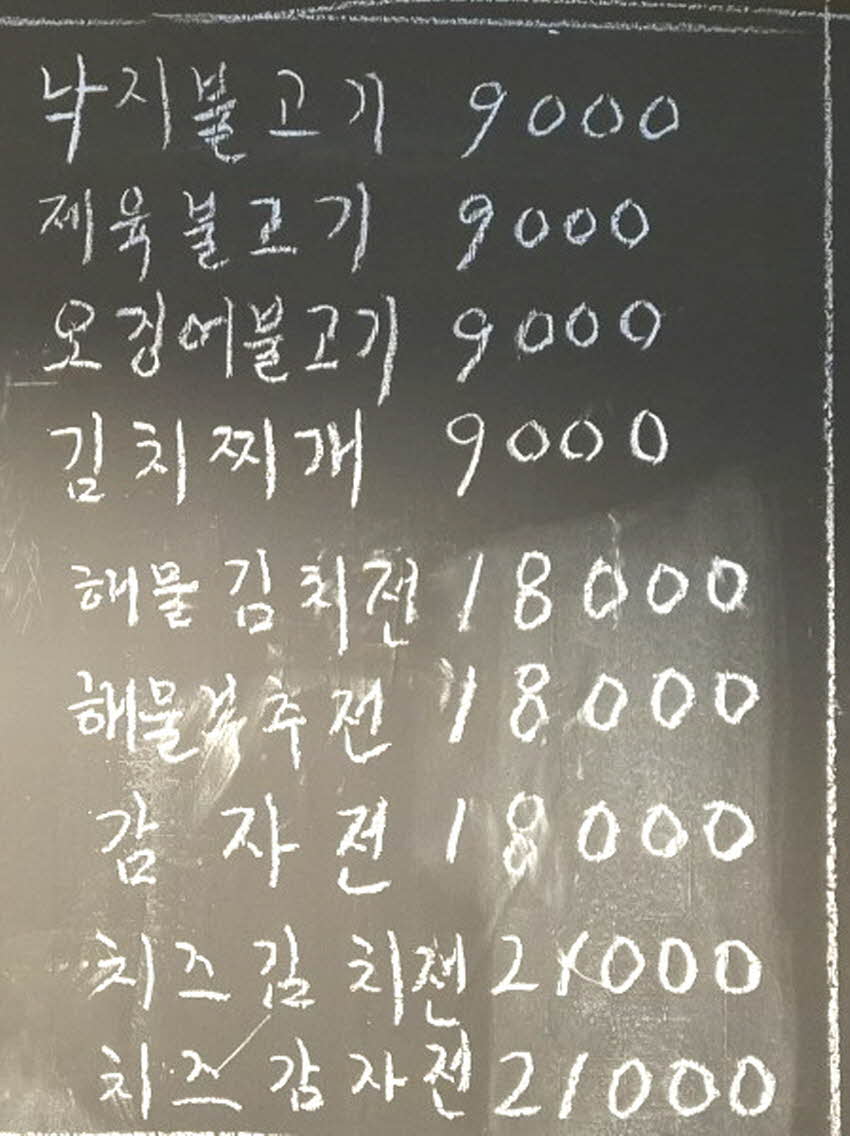 낙지불고기 9000
제육불고기 9000
오징어불고기 9000
김치찌개 9000
해물김치전 18000
해물부추전 18000
감자전 18000
치즈김치전 21000
치즈감자전 21000